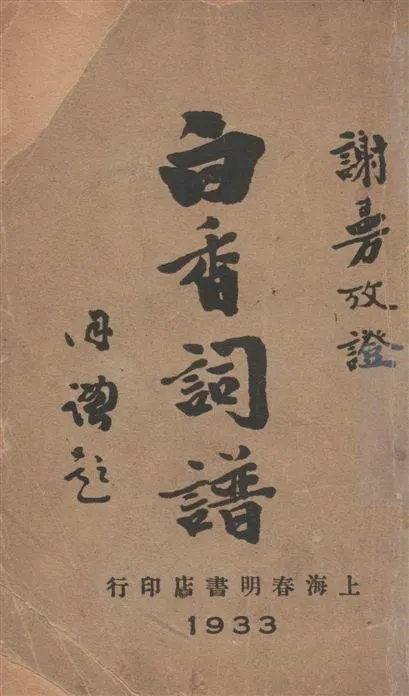 謝曼攷證
白香詞譜
題
上海春明書店印行
1933